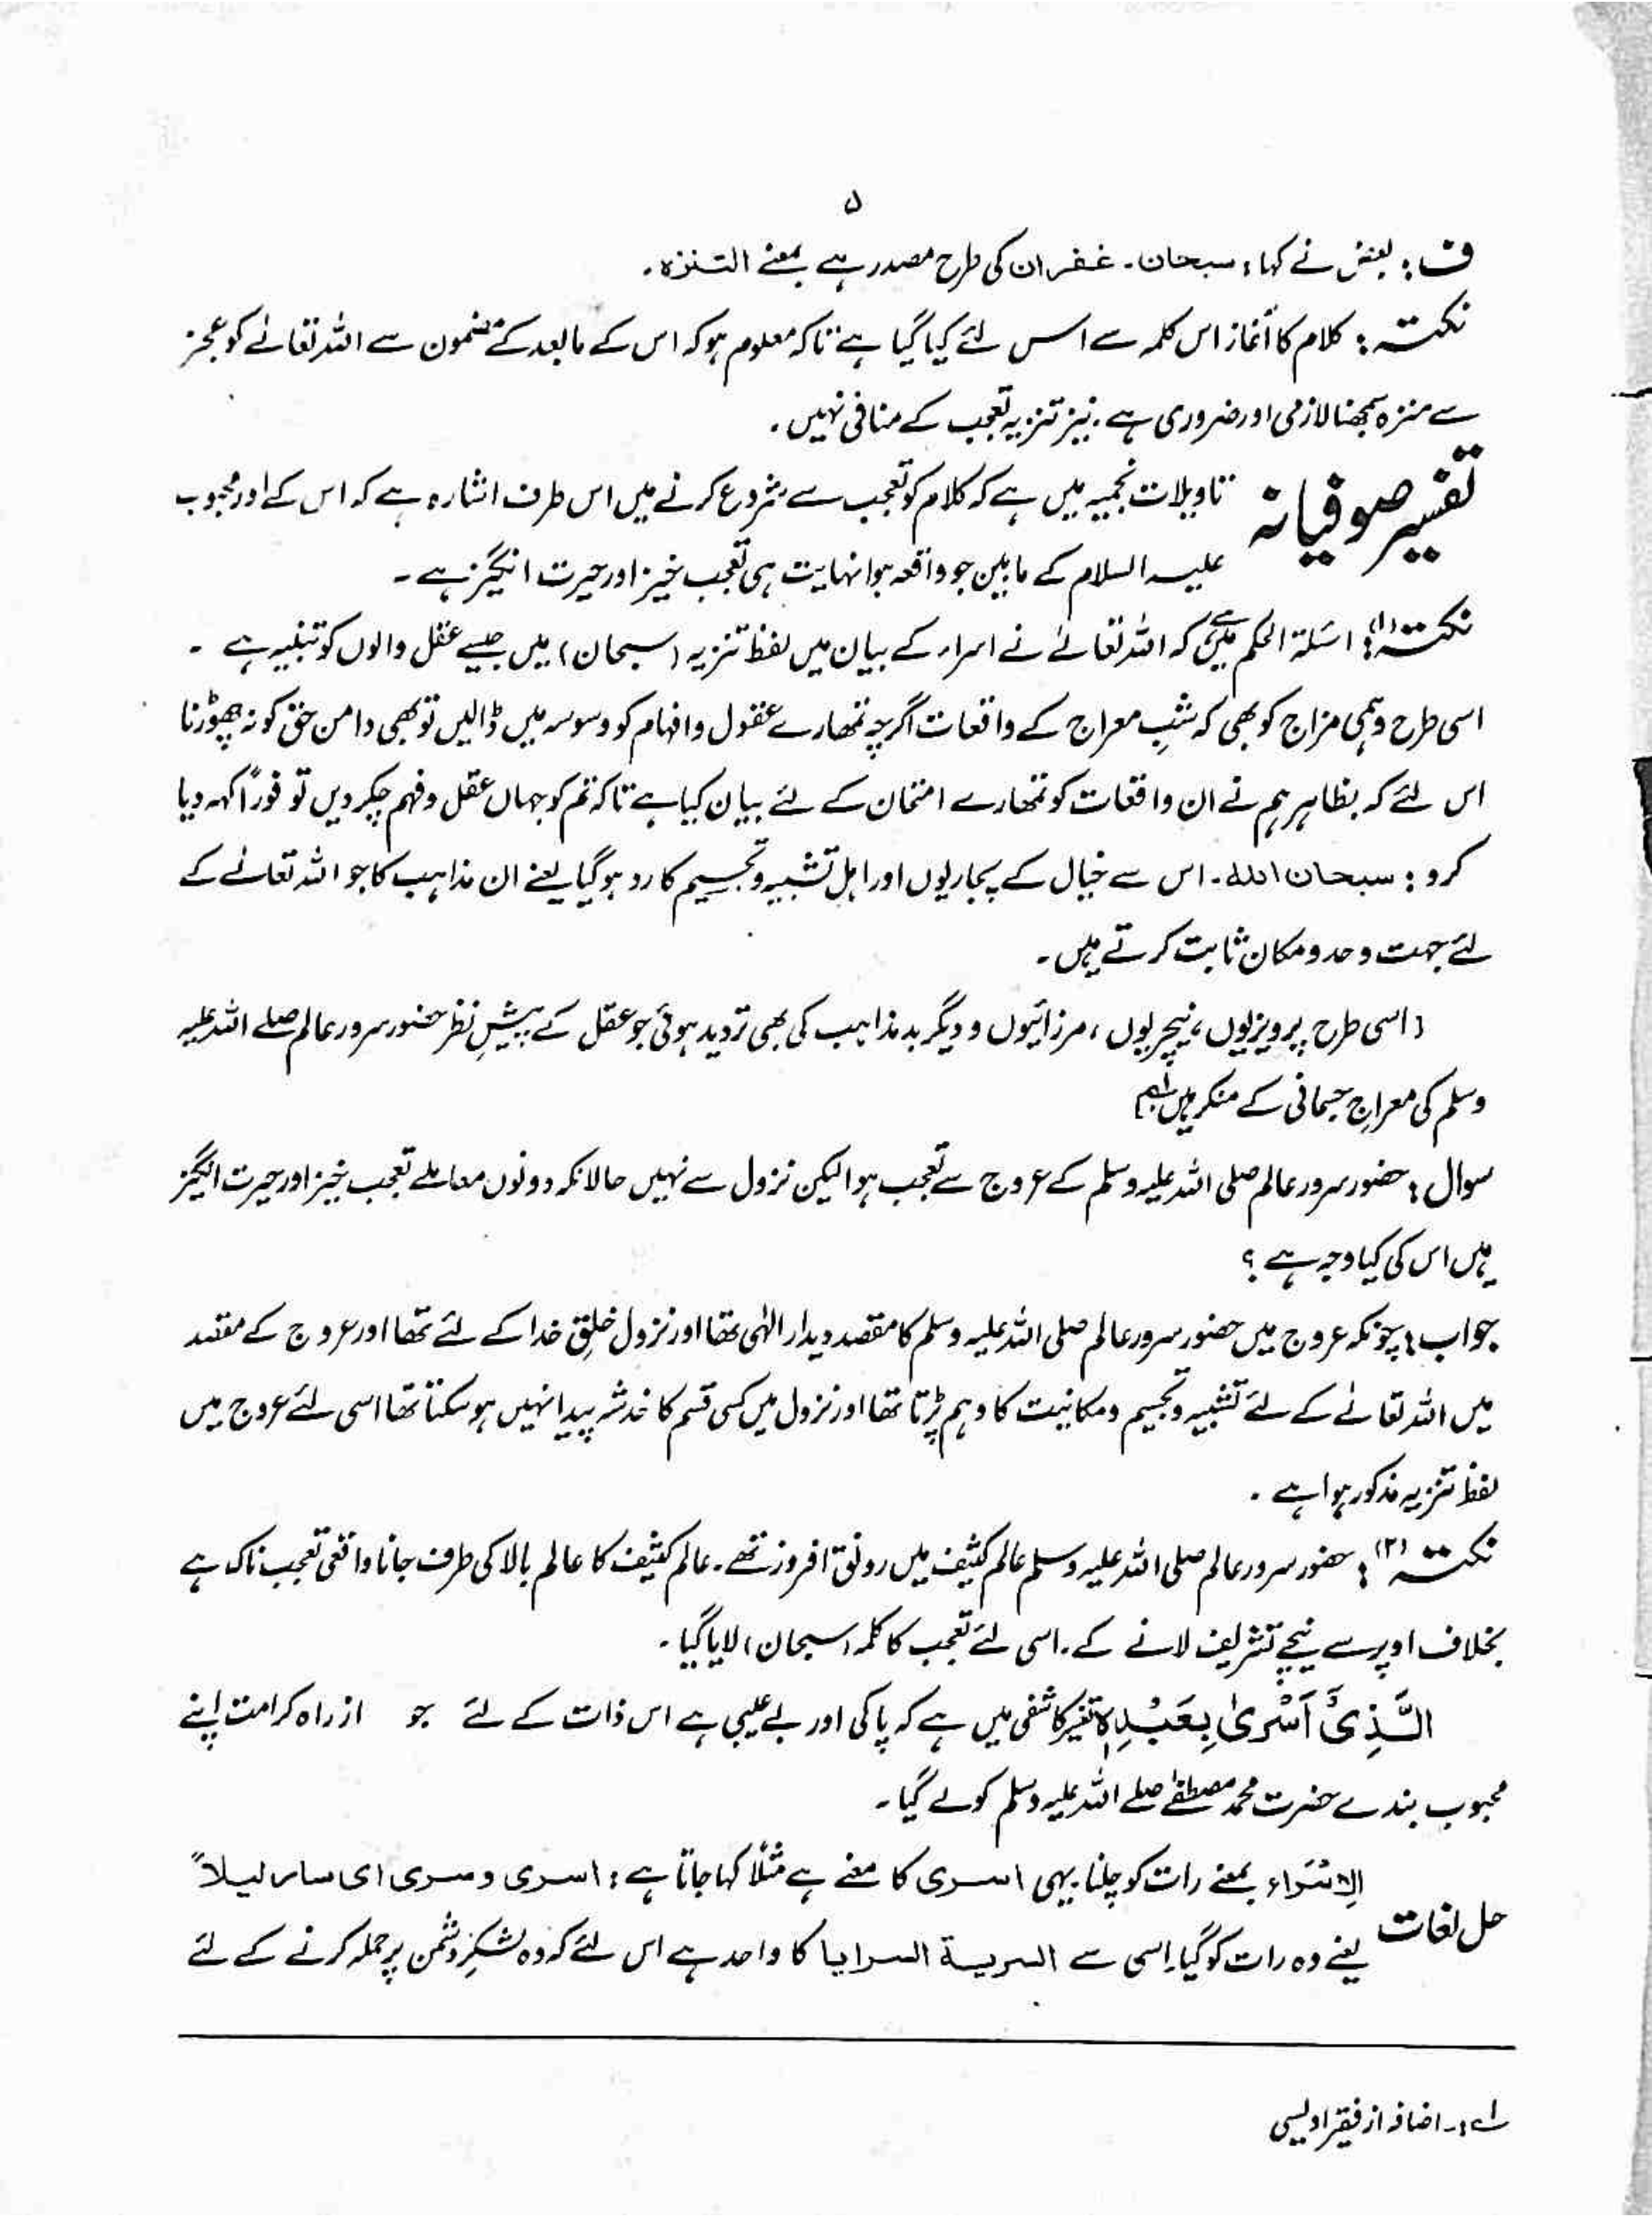 ۵
ف : بعض نے کہا ، سبحان ۔ غفران کی طرح مصدر ہے بمعنے التنزہ ۔
نکتہ : کلام کا آغاز اس کلمہ سے اس لئے کیا گیا ہے تاکہ معلوم ہو کہ اس کے مابعد کے مضمون سے اللہ تعالےٰ کو عجز
سے منزہ سمجھنا لازمی اور ضروری ہے . نیز تنزیہ تعجب کے منافی نہیں .
تفسیر صوفیانہ تاویلات نجمیہ میں ہے کہ کلام کو تعجب سے شروع کرنے میں اس طرف اشارہ ہے کہ اس کے اور محبوب
علیہ السلام کے مابین جو واقعہ ہوا نہایت ہی تعجب خیز اور حیرت انگیز ہے ۔
نکتہ (۱) : اسئلۃ الحکم میں ہے کہ اللہ تعالےٰ نے اسراء کے بیان میں لفظ تنزیہ (سبحان) میں جیسے عقل والوں کو تنبیہ ہے ۔
اسی طرح وہمی مزاج کو بھی کہ شبِ معراج کے واقعات اگرچہ تمھارے عقول و افہام کو وسوسہ میں ڈالیں تو بھی دامن حق کو نہ چھوڑنا
اس لئے کہ بظاہر ہم نے ان واقعات کو تمھارے امتحان کے لئے بیان کیا ہے تاکہ تم کو جہاں عقل و فہم چکر دیں تو فوراً کہہ دیا
کرو : سبحان اللہ ۔ اس سے خیال کے پجاریوں اور اہل تشبیہ و تجسیم کا رد ہو گیا یعنے ان مذاہب کا جو اللہ تعالےٰ کے
لئے جہت و حد و مکان ثابت کرتے ہیں ۔
( اسی طرح پرویزیوں ، نیچریوں ، مرزائیوں و دیگر بد مذاہب کی بھی تردید ہوئی جو عقل کے پیشِ نظر حضور سرور عالم صلے اللہ علیہ
وسلم کی معراجِ جسمانی کے منکر ہیں
سوال : حضور سرور عالم صلی اللہ علیہ وسلم کے عروج سے تعجب ہوا لیکن نزول سے نہیں حالانکہ دونوں معاملے تعجب خیز اور حیرت انگیز
ہیں اس کی کیا وجہ ہے ؟
جواب : چونکہ عروج میں حضور سرور عالم صلی اللہ علیہ وسلم کا مقصد دیدار الٰہی تھا اور نزول خلقِ خدا کے لئے تھا اور عروج کے مقصد
میں اللہ تعالےٰ کے لئے تشبیہ و تجسیم و مکانیت کا وہم پڑتا تھا اور نزول میں کسی قسم کا خدشہ پیدا نہیں ہو سکتا تھا اسی لئے عروج میں
لفظ تنزیہ مذکور ہوا ہے .
نکتہ (۲) : حضور سرور عالم صلی اللہ علیہ وسلم عالم کثیف میں رونق افروز تھے ۔ عالم کثیف کا عالم بالا کی طرف جانا واقعی تعجب ناک ہے
بخلاف اوپر سے نیچے تشریف لانے کے . اسی لئے تعجب کا کلمہ (سبحان) لایا گیا .
الَّذِیْٓ اَسْرٰی بِعَبْدِہٖ تفسیر کاشفی میں ہے کہ پاکی اور بے عیبی ہے اس ذات کے لئے جو از راہ کرامت اپنے
محبوب بندے حضرت محمد مصطفےٰ صلے اللہ علیہ وسلم کو لے گیا ۔
حل لغات الاسْرَاء بمعنے رات کو چلنا یہی اسری کا معنے ہے مثلاً کہا جاتا ہے : اسری و سری ای سار لیلاً
یعنے وہ رات کو گیا اسی سے السریۃ السرایا کا واحد ہے اس لئے کہ وہ لشکر دشمن پر حملہ کرنے کے لئے
لہ :۔ اضافہ از فقیر اویسی